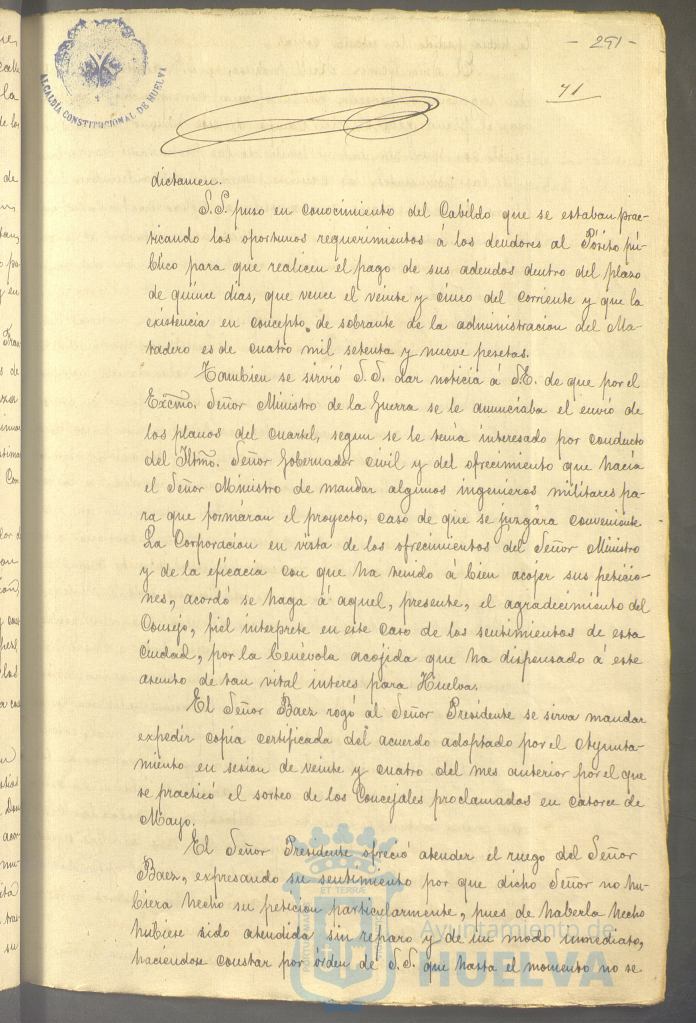 - 291 -
71
ALCALDÍA CONSTITUCIONAL DE HUELVA
dictamen.
S.S. puso en conocimiento del Cabildo que se estaban prac-
ticando los oportunos requerimientos á los deudores al Pósito pú-
blico para que realicen el pago de sus adeudos dentro del plazo
de quince dias, que vence el veinte y cinco del corriente y que la
existencia en concepto de sobrante de la administracion del Ma-
tadero es de cuatro mil setenta y nueve pesetas.
Tambien se sirvió S.S. dar noticia á S.E. de que por el
Excmo. Señor Ministro de la Guerra se le anunciaba el envio de
los planos del cuartel, segun se le tenia interesado por conducto
del Iltmo. Señor Gobernador civil y del ofrecimiento que hacia
el Señor Ministro de mandar algunos ingenieros militares pa-
ra que formáran el proyecto, caso de que se juzgára conveniente.
La Corporacion en vista de los ofrecimientos del Señor Ministro
y de la eficacia con que ha tenido á bien acojer sus peticio-
nes, acordó se haga á aquel, presente, el agradecimiento del
Consejo, fiel interprete en este caso de los sentimientos de esta
Ciudad, por la benévola acojida que ha dispensado á este
asunto de tan vital interes para Huelva.
El Señor Baez rogó al Señor Presidente se sirva mandar
expedir copia certificada del acuerdo adoptado por el Ayunta-
miento en sesion de veinte y cuatro del mes anterior por el que
se practicó el sorteo de los Concejales proclamados en catorce de
Mayo.
El Señor Presidente ofreció atender el ruego del Señor
Baez, expresando su sentimiento por que dicho Señor no hu-
biera hecho su peticion particularmente, pues de haberla hecho
hubiese sido atendida sin reparo y de un modo inmediato,
haciendose constar por órden de S.S. que hasta el momento no se
Ayuntamiento de
HUELVA